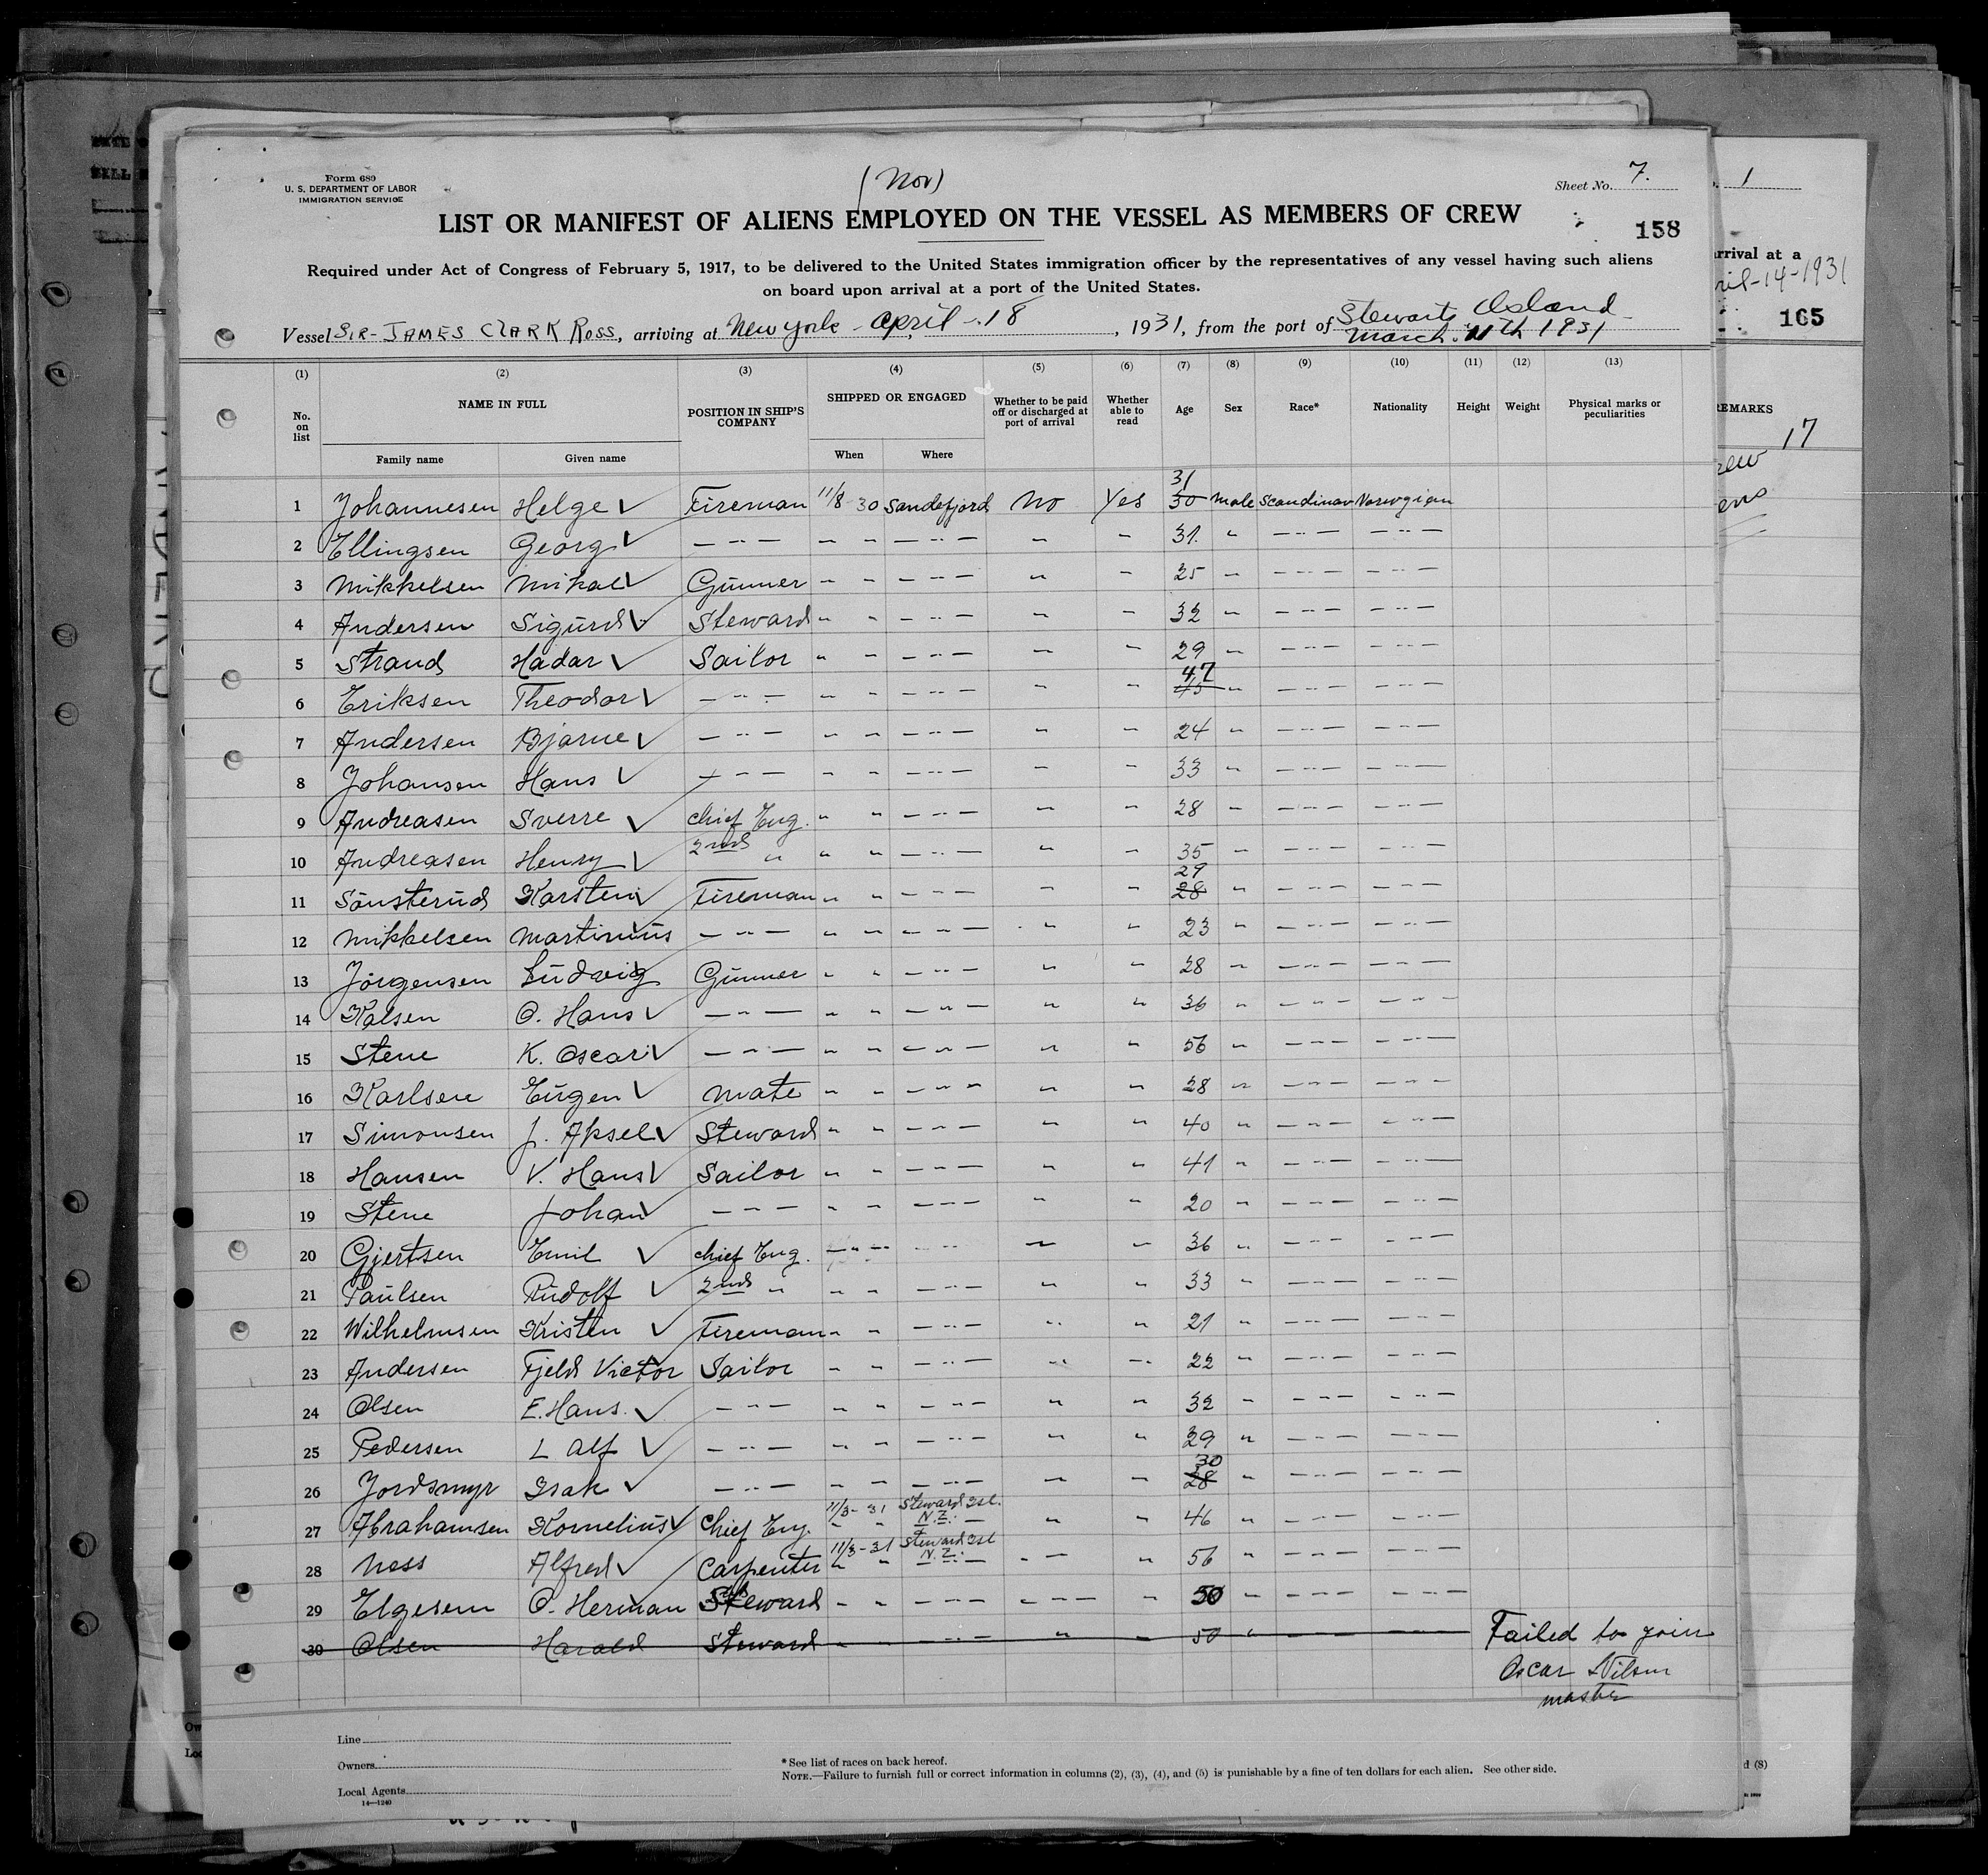 Form 680
U. S. DEPARTMENT OF LABOR
IMMIGRATION SERVICE
(Nor)
Sheet No. 7.
LIST OR MANIFEST OF ALIENS EMPLOYED ON THE VESSEL AS MEMBERS OF CREW
158
Required under Act of Congress of February 5, 1917, to be delivered to the United States immigration officer by the representatives of any vessel having such aliens
on board upon arrival at a port of the United States.
Vessel SIR-JAMES CLARK ROSS, arriving at New York - April - 18, 1931, from the port of Stewarts Island -
March. 11th 1931
(1) (2) (3) (4) (5) (6) (7) (8) (9) (10) (11) (12) (13)
No. on list NAME IN FULL POSITION IN SHIP'S COMPANY SHIPPED OR ENGAGED Whether to be paid off or discharged at port of arrival Whether able to read Age Sex Race* Nationality Height Weight Physical marks or peculiarities
Family name Given name When Where
1 Johannesen Helge ✓ Fireman 11/8 30 Sandefjord No Yes 30 31 male Scandinav Norwgian
2 Ellingsen Georg ✓ — " — " " — " — " " 31. " — " — — " —
3 Mikkelsen Mikal ✓ Gunner " " — " — " " 25 " — " — — " —
4 Andersen Sigurd ✓ Steward " " — " — " " 32 " — " — — " —
5 Strand Hadar ✓ Sailor " " — " — " " 29 " — " — — " —
6 Eriksen Theodor ✓ — " — " " — " — " " 45 47 " — " — — " —
7 Andersen Bjarne ✓ — " — " " — " — " " 24 " — " — — " —
8 Johansen Hans ✓ — " — " " — " — " " 33 " — " — — " —
9 Andreasen Sverre ✓ Chief Eng. " " — " — " " 28 " — " — — " —
10 Andreasen Henry ✓ 2nd " " " — " — " " 35 " — " — — " —
11 Sønsterud Karsten ✓ Fireman " " — " — " " 28 29 " — " — — " —
12 Mikkelsen Martinius ✓ — " — " " — " — " " 23 " — " — — " —
13 Jørgensen Ludvig ✓ Gunner " " — " — " " 28 " — " — — " —
14 Kalsen O. Hans ✓ — " — " " — " — " " 36 " — " — — " —
15 Stene K. Oscar ✓ — " — " " — " — " " 56 " — " — — " —
16 Karlsen Eugen ✓ Mate " " — " — " " 28 " — " — — " —
17 Simonsen J. Aksel ✓ Steward " " — " — " " 40 " — " — — " —
18 Hansen V. Hans ✓ Sailor " " — " — " " 41 " — " — — " —
19 Stene Johan ✓ — " — " " — " — " " 20 " — " — — " —
20 Gjertsen Emil ✓ Chief Eng. " " — " — " " 36 " — " — — " —
21 Paulsen Rudolf ✓ 2nd " " " — " — " " 33 " — " — — " —
22 Wilhelmsen Kristen ✓ Fireman " " — " — " " 21 " — " — — " —
23 Andersen Fjeld Victor ✓ Sailor " " — " — " " 22 " — " — — " —
24 Olsen E. Hans. ✓ — " — " " — " — " " 32 " — " — — " —
25 Pedersen L Alf ✓ — " — " " — " — " " 29 " — " — — " —
26 Jordsmyr Isak ✓ — " — " " — " — " " 28 30 " — " — — " —
27 Abrahamsen Kornelius ✓ Chief Eng. 11/3-31 Steward Isl. N.Z. " " 46 " — " — — " —
28 Ness Alfred ✓ Carpenter 11/3-31 Steward Isl N.Z. " " 56 " — " — — " —
29 Elgesem O. Herman ✓ Steward " " — " — — " — " 50 " — " — — " —
30 Olsen Harald Steward " — " — " " 50 " — — Failed to join
Oscar Nilsen
master
Line
Owners
Local Agents
14—1240
*See list of races on back hereof.
NOTE.—Failure to furnish full or correct information in columns (2), (3), (4), and (5) is punishable by a fine of ten dollars for each alien. See other side.
1
arrival at a
ril-14-1931
165
REMARKS
17